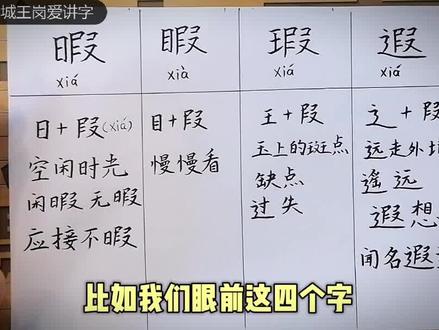 城王岗爱讲字
暇
xiá
日+叚(xiá)
空闲时光
闲暇 无暇
应接不暇
睱
xià
目+叚
慢慢看
瑕
xiá
王+叚
玉上的斑点
缺点
过失
遐
xiá
辶+叚
远走外
遥远
遐想
闻名遐
比如我们眼前这四个字